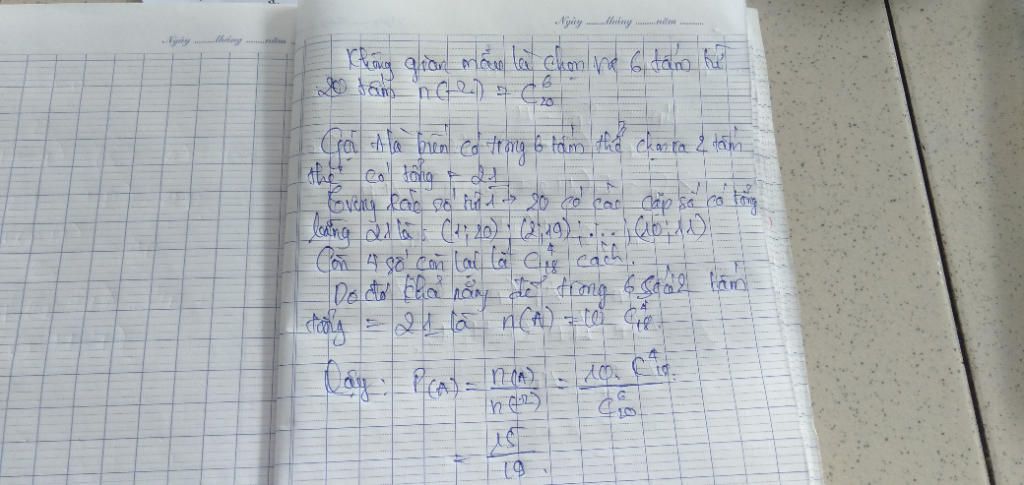 Ngày ........ tháng ........ năm ........
Ngày ........ tháng ........ năm ........
Không gian mẫu là chọn ra 6 tấm từ
20 tấm n(Ω) = C⁶₂₀
Gọi A là biến cố trong 6 tấm thẻ chọn ra 2 tấm
thẻ có tổng = 21
các số từ 1 → 20 có các cặp số có tổng
bằng 21 là: (1;20); (2;19); ....; (10;11)
Còn 4 số còn lại là C⁴₁₈ cách.
Do đó khả năng để trong 6 số có 2 tấm
tổng = 21 là n(A) = 10 C⁴₁₈.
Vậy: P(A) = n(A)/n(Ω) = 10. C⁴₁₈/C⁶₂₀
= 15/19.